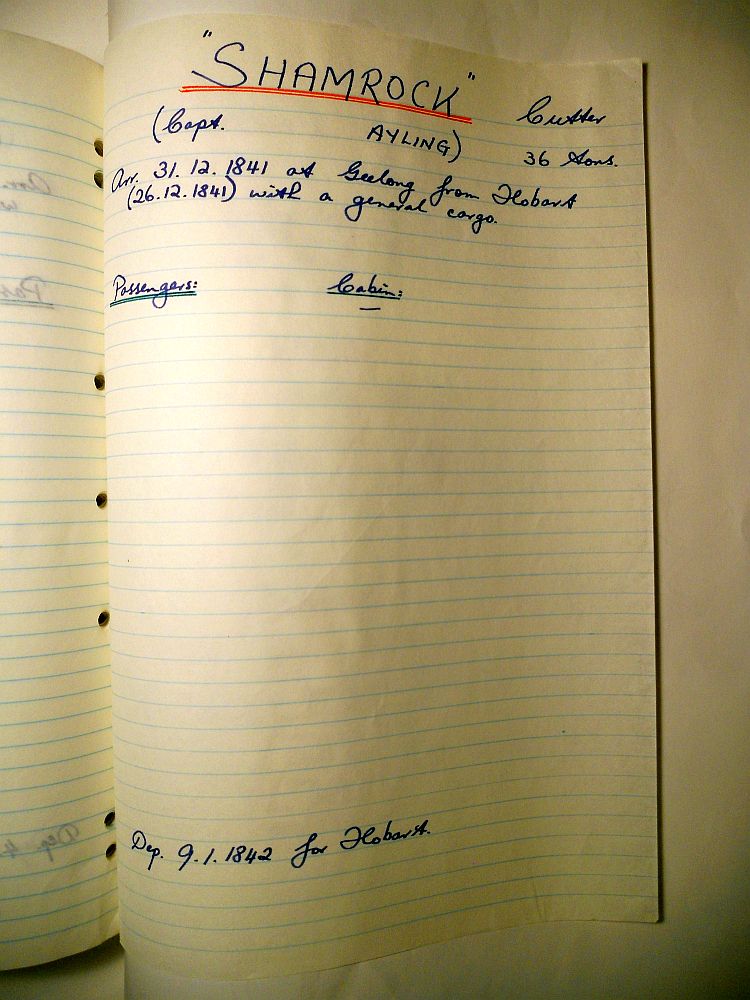 "SHAMROCK" Cutter
(Capt. AYLING) 36 tons.
Arr. 31.12.1841 at Geelong from Hobart
(26.12.1841) with a general cargo.
Passengers: Cabin:
—
Dep. 9.1.1842 for Hobart.